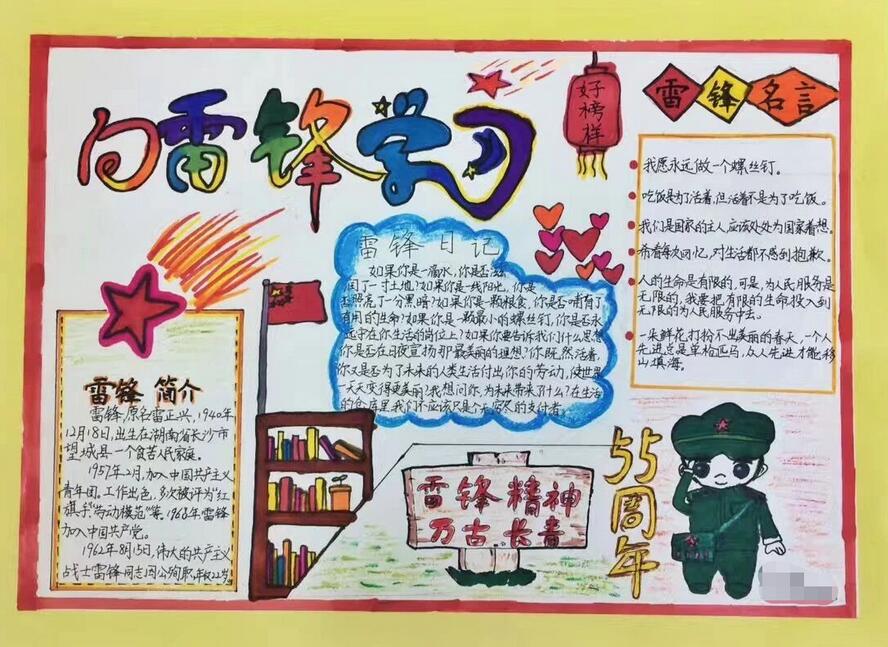 向雷锋学习
好榜样
雷锋名言
我愿永远做一个螺丝钉。
吃饭是为了活着,但活着不是为了吃饭。
我们是国家的主人,应该处处为国家着想。
希看每次回忆,对生活都不感到抱歉。
人的生命是有限的,可是,为人民服务是
无限的,我要把有限的生命投入到
无限的为人民服务中去。
一朵鲜花打扮不出美丽的春天,一个人
先进总是单枪匹马,众人先进才能移
山填海。
雷锋日记
如果你是一滴水,你是否滋
润了一寸土地?如果你是一线阳光,你是
否照亮了一分黑暗?如果你是一颗粮食,你是否哺育了
有用的生命?如果你是一颗最小的螺丝钉,你是否永
远守在你生活的岗位上?如果你要告诉我们什么思想
你是否在日夜宣扬那最美丽的理想?你既然活着,
你又是否为了未来的人类生活付出你的劳动,使世界
一天天变得更美丽?我想问你,为未来带来了什么?在生活
的仓库里,我们不应该只是个无穷尽的支付者。
雷锋 简介
雷锋,原名雷正兴,1940年
12月18日,出生在湖南省长沙市
望城县一个贫苦人民家庭。
1957年2月,加入中国共产主义
青年团,工作出色,多次被评为“红
旗手”“劳动模范”等。1960年,雷锋
加入中国共产党。
1962年8月15日,伟大的共产主义
战士雷锋同志因公殉职,年仅22岁。
雷锋精神
万古长青
55周年